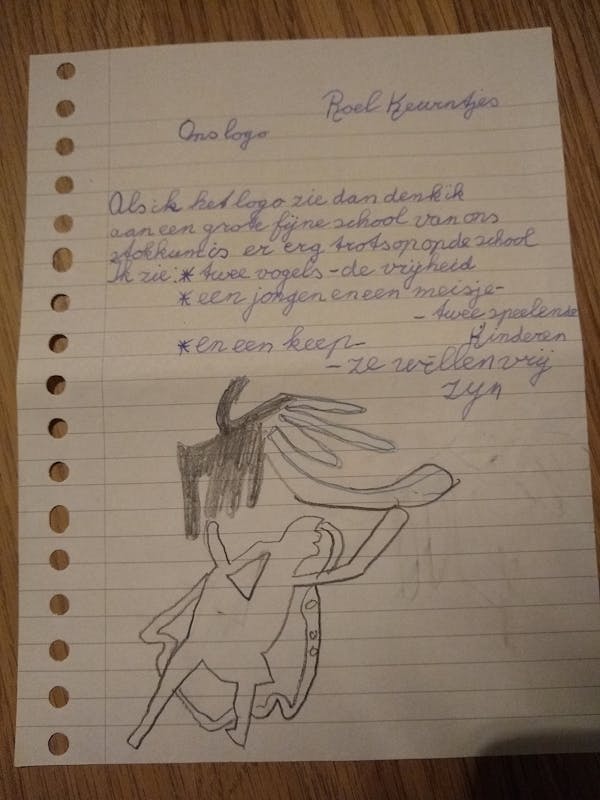 Roel Keurntjes
Ons logo
Als ik het logo zie dan denk ik
aan een grote fijne school van ons
stokkum is er erg trots op op de school
Ik zie: * twee vogels - de vrijheid
* een jongen en een meisje -
- twee speelende
kinderen
* en een keep -
- ze willen vrij
zyn